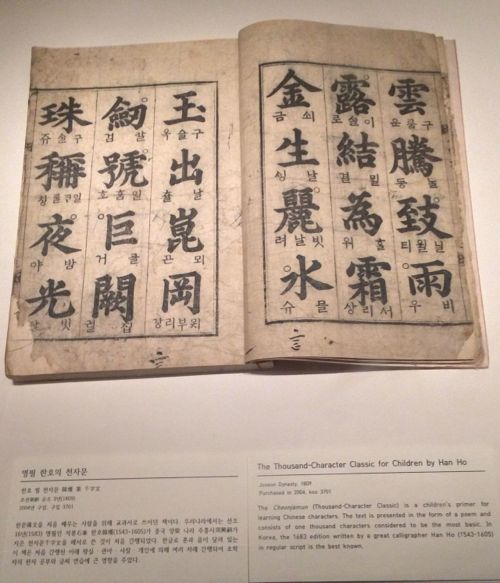 雲騰致雨
구룸운 비우
露結為霜
이슬로 밀결 홀위 서리상
金生麗水
쇠금 날싱 빗날려 믈슈
玉出崑岡
구슬옥 날츌 뫼곤 뫼부리강
劒號巨闕
갈검 일홈호 클거 집궐
珠稱夜光
구슬쥬 밤야
명필 한호의 천자문
한호 필 천자문 韓濩 筆 千字文
조선朝鮮 순조 9년(1809)
2004년 구입, 구입 3701
한문漢文을 처음 배우는 사람을 위해 교과서로 쓰이던 책이다. 우리나라에서는 선조
16년(1583) 명필인 석봉石峯 한호韓濩(1543-1605)가 중국 양梁 나라 주흥사周興嗣가
지은 천자문千字文을 해서로 쓴 것이 처음 간행되었다. 훈과 음이 달려 있는
이 책은 처음 간행된 이래 왕실 · 관아 · 사찰 · 개인에 의해 여러 차례 간행되어 초학
자의 한자 공부와 글씨 연습에 큰 영향을 주었다.
The Thousand-Character Classic for Children by Han Ho
Joseon Dynasty, 1809
Purchased in 2004, koo 3701
The Cheonjamun (Thousand-Character Classic) is a children's primer for
learning Chinese characters. The text is presented in the form of a poem and
consists of one thousand characters considered to be the most basic. In
Korea, the 1683 edition written by a great calligrapher Han Ho (1543-1605)
in regular script is the best known.